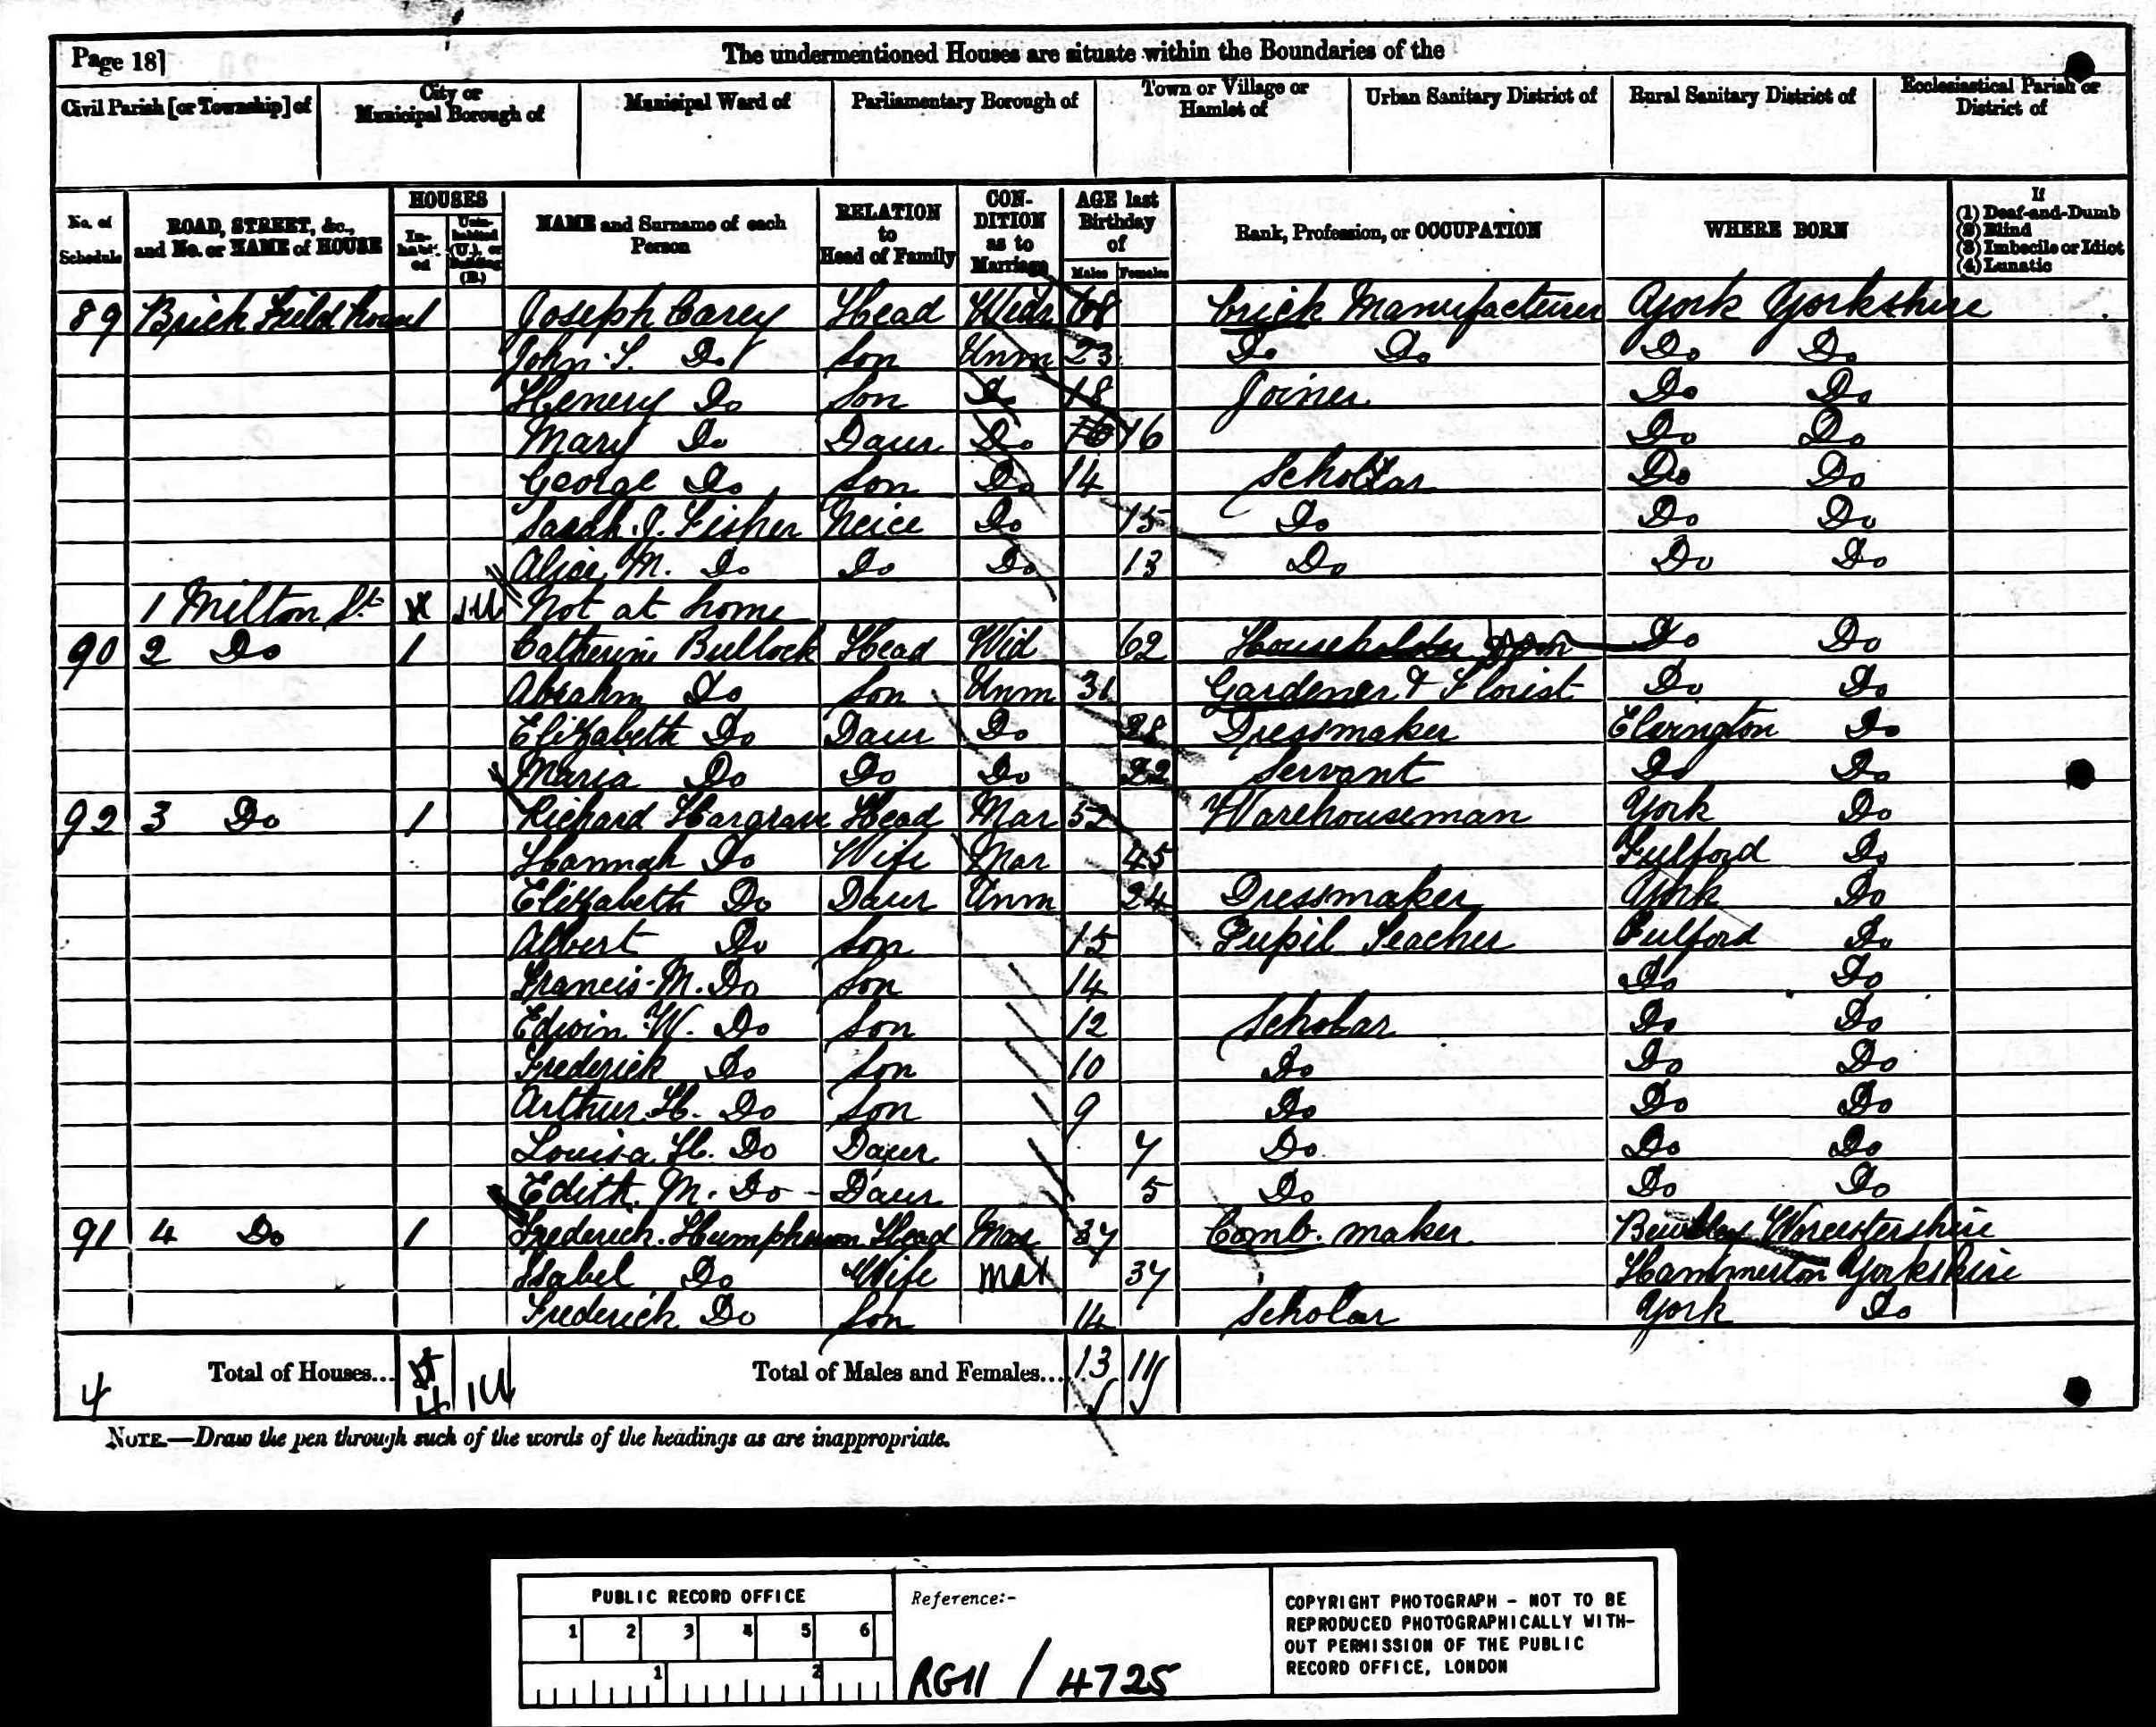 Page 18]
The undermentioned Houses are situate within the Boundaries of the
Civil Parish [or Township] of | City or Municipal Borough of | Municipal Ward of | Parliamentary Borough of | Town or Village or Hamlet of | Urban Sanitary District of | Rural Sanitary District of | Ecclesiastical Parish or District of
No. of Schedule | ROAD, STREET, &c., and No. or NAME of HOUSE | HOUSES Inhabited | Uninhabited (U.), or Building (B.) | NAME and Surname of each Person | RELATION to Head of Family | CONDITION as to Marriage | AGE last Birthday of Males | Females | Rank, Profession, or OCCUPATION | WHERE BORN | If (1) Deaf-and-Dumb (2) Blind (3) Imbecile or Idiot (4) Lunatic
89 Brick Field house 1 Joseph Carey Head Widr 68 brick Manufacturer York Yorkshire
John S. Do Son Unm 23 Do Do Do Do
Henery Do Son Do 18 Joiner Do Do
Mary Do Daur Do 16 Do Do
George Do Son Do 14 Scholar Do Do
Sarah J. Fisher Neice Do 15 Do Do Do
Alice M. Do Do Do 13 Do Do Do
1 Milton St 1U Not at home
90 2 Do 1 Catherine Bullock Head Wid 62 Householder Do Do
Abrahm Do Son Unm 31 Gardener & Florist Do Do
Elizabeth Do Daur Do 28 Dressmaker Elvington Do
Maria Do Do Do 22 Servant Do Do
92 3 Do 1 Richard Hargrave Head Mar 52 Warehouseman York Do
Hannah Do Wife Mar 45 Fulford Do
Elizabeth Do Daur Unm 24 Dressmaker York Do
Albert Do Son 15 Pupil Teacher Fulford Do
Francis M. Do Son 14 Do Do
Edwin W. Do Son 12 Scholar Do Do
Frederick Do Son 10 Do Do Do
Arthur H. Do Son 9 Do Do Do
Louisa H. Do Daur 7 Do Do Do
Edith M. Do Daur 5 Do Do Do
91 4 Do 1 Frederick Humpherson Head Mar 37 Comb maker Bewdley Worcestershire
Isabel Do Wife Mar 37 Hammerton Yorkshire
Frederick Do Son 14 Scholar York Do
4 Total of Houses... 4 1U Total of Males and Females... 13 11
NOTE.—Draw the pen through such of the words of the headings as are inappropriate.
PUBLIC RECORD OFFICE
1 2 3 4 5 6
1 2
Reference:-
RG11 / 4725
COPYRIGHT PHOTOGRAPH - NOT TO BE
REPRODUCED PHOTOGRAPHICALLY WITH-
OUT PERMISSION OF THE PUBLIC
RECORD OFFICE, LONDON